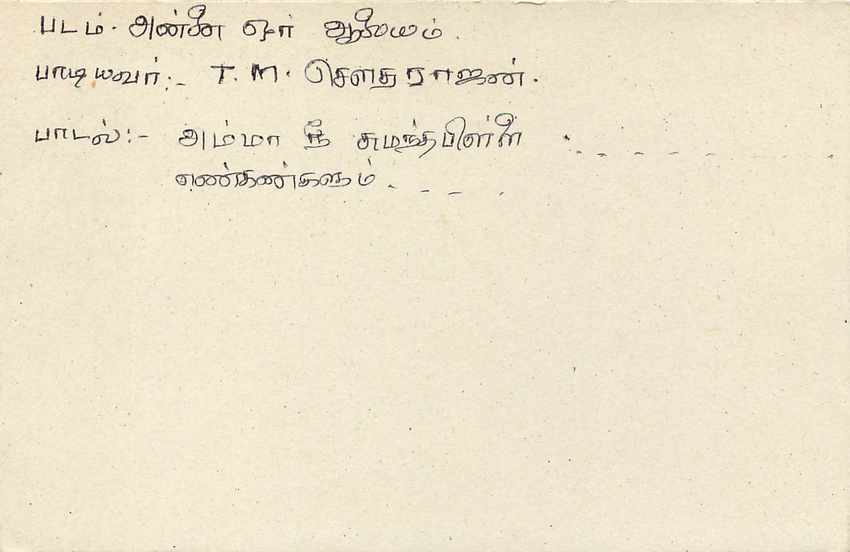 படம். அன்னை ஓர் ஆலயம்.
பாடியவர்:- T. M. சௌந்தரராஜன்.
பாடல்:- அம்மா நீ சுமந்தபிள்ளை . - - - - - - - -
எண்கண்களும். - - - -